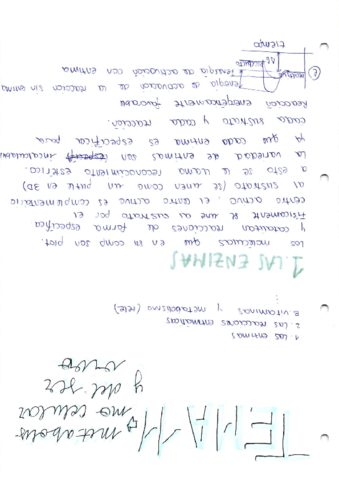 TEMA → metabolis-
mo celular
y del ser
vivo
1. Las enzimas
2. Las reacciones enzimáticas
3. vitaminas y metabolismo (tele)
1. LAS ENZIMAS
Las moléculas que en su comp son prot.
y catalizan reacciones de forma específica
Físicamente se une al sustrato por el
centro activo. el centro activo es complementario
al sustrato (se unen como un puzle en 3D)
a esto se le llama reconocimiento estérico.
La variedad de enzimas son incalculables
ya que cada enzima es específica para
cada sustrato y cada reacción.
Reacción energéticamente
Energía de activación de la reacción sin enzima
Energía de activación con enzima
tiempo